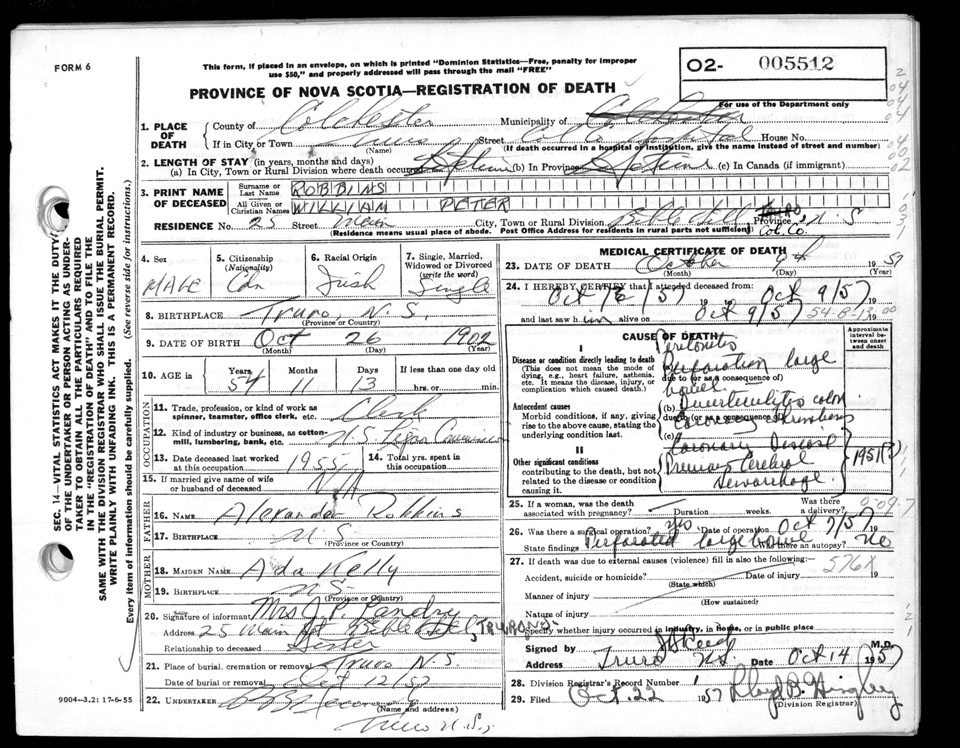 FORM 6
This form, if placed in an envelope, on which is printed "Dominion Statistics—Free, penalty for improper
use $50," and properly addressed will pass through the mail "FREE"
O2- 005512
For use of the Department only
PROVINCE OF NOVA SCOTIA—REGISTRATION OF DEATH
1. PLACE OF DEATH
County of Colchester Municipality of Colchester
If in City or Town Truro Street Col. Co. Hospital House No.
(Name) (If death occurred in a hospital or institution, give the name instead of street and number)
2. LENGTH OF STAY (in years, months and days)
(a) In City, Town or Rural Division where death occurred Lifetime (b) In Province Lifetime (c) In Canada (if immigrant)
3. PRINT NAME OF DECEASED
Surname or Last Name ROBBINS
All Given or Christian Names WILLIAM PETER
RESIDENCE No. 25 Street Main City, Town or Rural Division Bible Hill Truro Province N.S
(Residence means usual place of abode. Post Office Address for residents in rural parts not sufficient) Col. Co.
4. Sex
MALE
5. Citizenship
(Nationality)
Can
6. Racial Origin
Irish
7. Single, Married,
Widowed or Divorced
(write the word)
Single
8. BIRTHPLACE Truro, N.S.
(Province or Country)
9. DATE OF BIRTH Oct 26 1902
(Month) (Day) (Year)
10. AGE in
Years Months Days If less than one day old
54 11 13 hrs. or min.
OCCUPATION
11. Trade, profession, or kind of work as
spinner, teamster, office clerk, etc. Clerk
12. Kind of industry or business, as cotton-
mill, lumbering, bank, etc. N.S. Liquor Commission
13. Date deceased last worked
at this occupation 1955
14. Total yrs. spent in
this occupation
15. If married give name of wife
or husband of deceased N/A
FATHER
16. NAME Alexander Robbins
17. BIRTHPLACE N S
(Province or Country)
MOTHER
18. MAIDEN NAME Ada Kelly
19. BIRTHPLACE N.S.
(Province or Country)
20. Signature of informant Mrs J. P. Landry
Address 25 Main St Bible Hill, TRURO N.S.
Relationship to deceased Sister
21. Place of burial, cremation or removal Truro N.S.
Date of burial or removal Oct 12/57
22. UNDERTAKER
(Name and address)
Truro N.S.
9004—3.2: 17-6-55
MEDICAL CERTIFICATE OF DEATH
23. DATE OF DEATH October 9th 1957
(Month) (Day) (Year)
24. I HEREBY CERTIFY that I attended deceased from:
Oct /57 19 to Oct 9/57 19
and last saw him alive on Oct 9/57 54-8-13 19
CAUSE OF DEATH
Approximate interval between onset and death
I
Disease or condition directly leading to death
(This does not mean the mode of
dying, e.g., heart failure, asthenia,
etc. It means the disease, injury, or
complication which caused death.)
Peritonitis
Perforation large
due to (or as a consequence of)
bowel
Antecedent causes
Morbid conditions, if any, giving
rise to the above cause, stating the
underlying condition last.
(b) Diverticulitis colon
due to (or as a consequence of)
Coronary Thrombosis
(c)
II
Other significant conditions
contributing to the death, but not
related to the disease or condition
causing it.
Coronary Disease
Previous Cerebral
Hemorrhage.
1951(?)
25. If a woman, was the death
associated with pregnancy? Duration weeks. Was there a delivery?
26. Was there a surgical operation? yes Date of operation Oct 7/57 19
State findings Perforated large bowel Was there an autopsy? No
27. If death was due to external causes (violence) fill in also the following: 576X
Accident, suicide or homicide? Date of injury 19
(State which)
Manner of injury
(How sustained)
Nature of injury
Specify whether injury occurred in industry, in home, or in public place
Signed by M.D.
Address Truro N.S. Date Oct 14 1957
28. Division Registrar's Record Number
29. Filed Oct. 22 1957
(Division Registrar)
SEC. 14—VITAL STATISTICS ACT MAKES IT THE DUTY
OF THE UNDERTAKER OR PERSON ACTING AS UNDER-
TAKER TO OBTAIN ALL THE PARTICULARS REQUIRED
IN THE "REGISTRATION OF DEATH" AND TO FILE THE
SAME WITH THE DIVISION REGISTRAR WHO SHALL ISSUE THE BURIAL PERMIT.
WRITE PLAINLY WITH UNFADING INK. THIS IS A PERMANENT RECORD.
Every item of information should be carefully supplied. (See reverse side for instructions.)